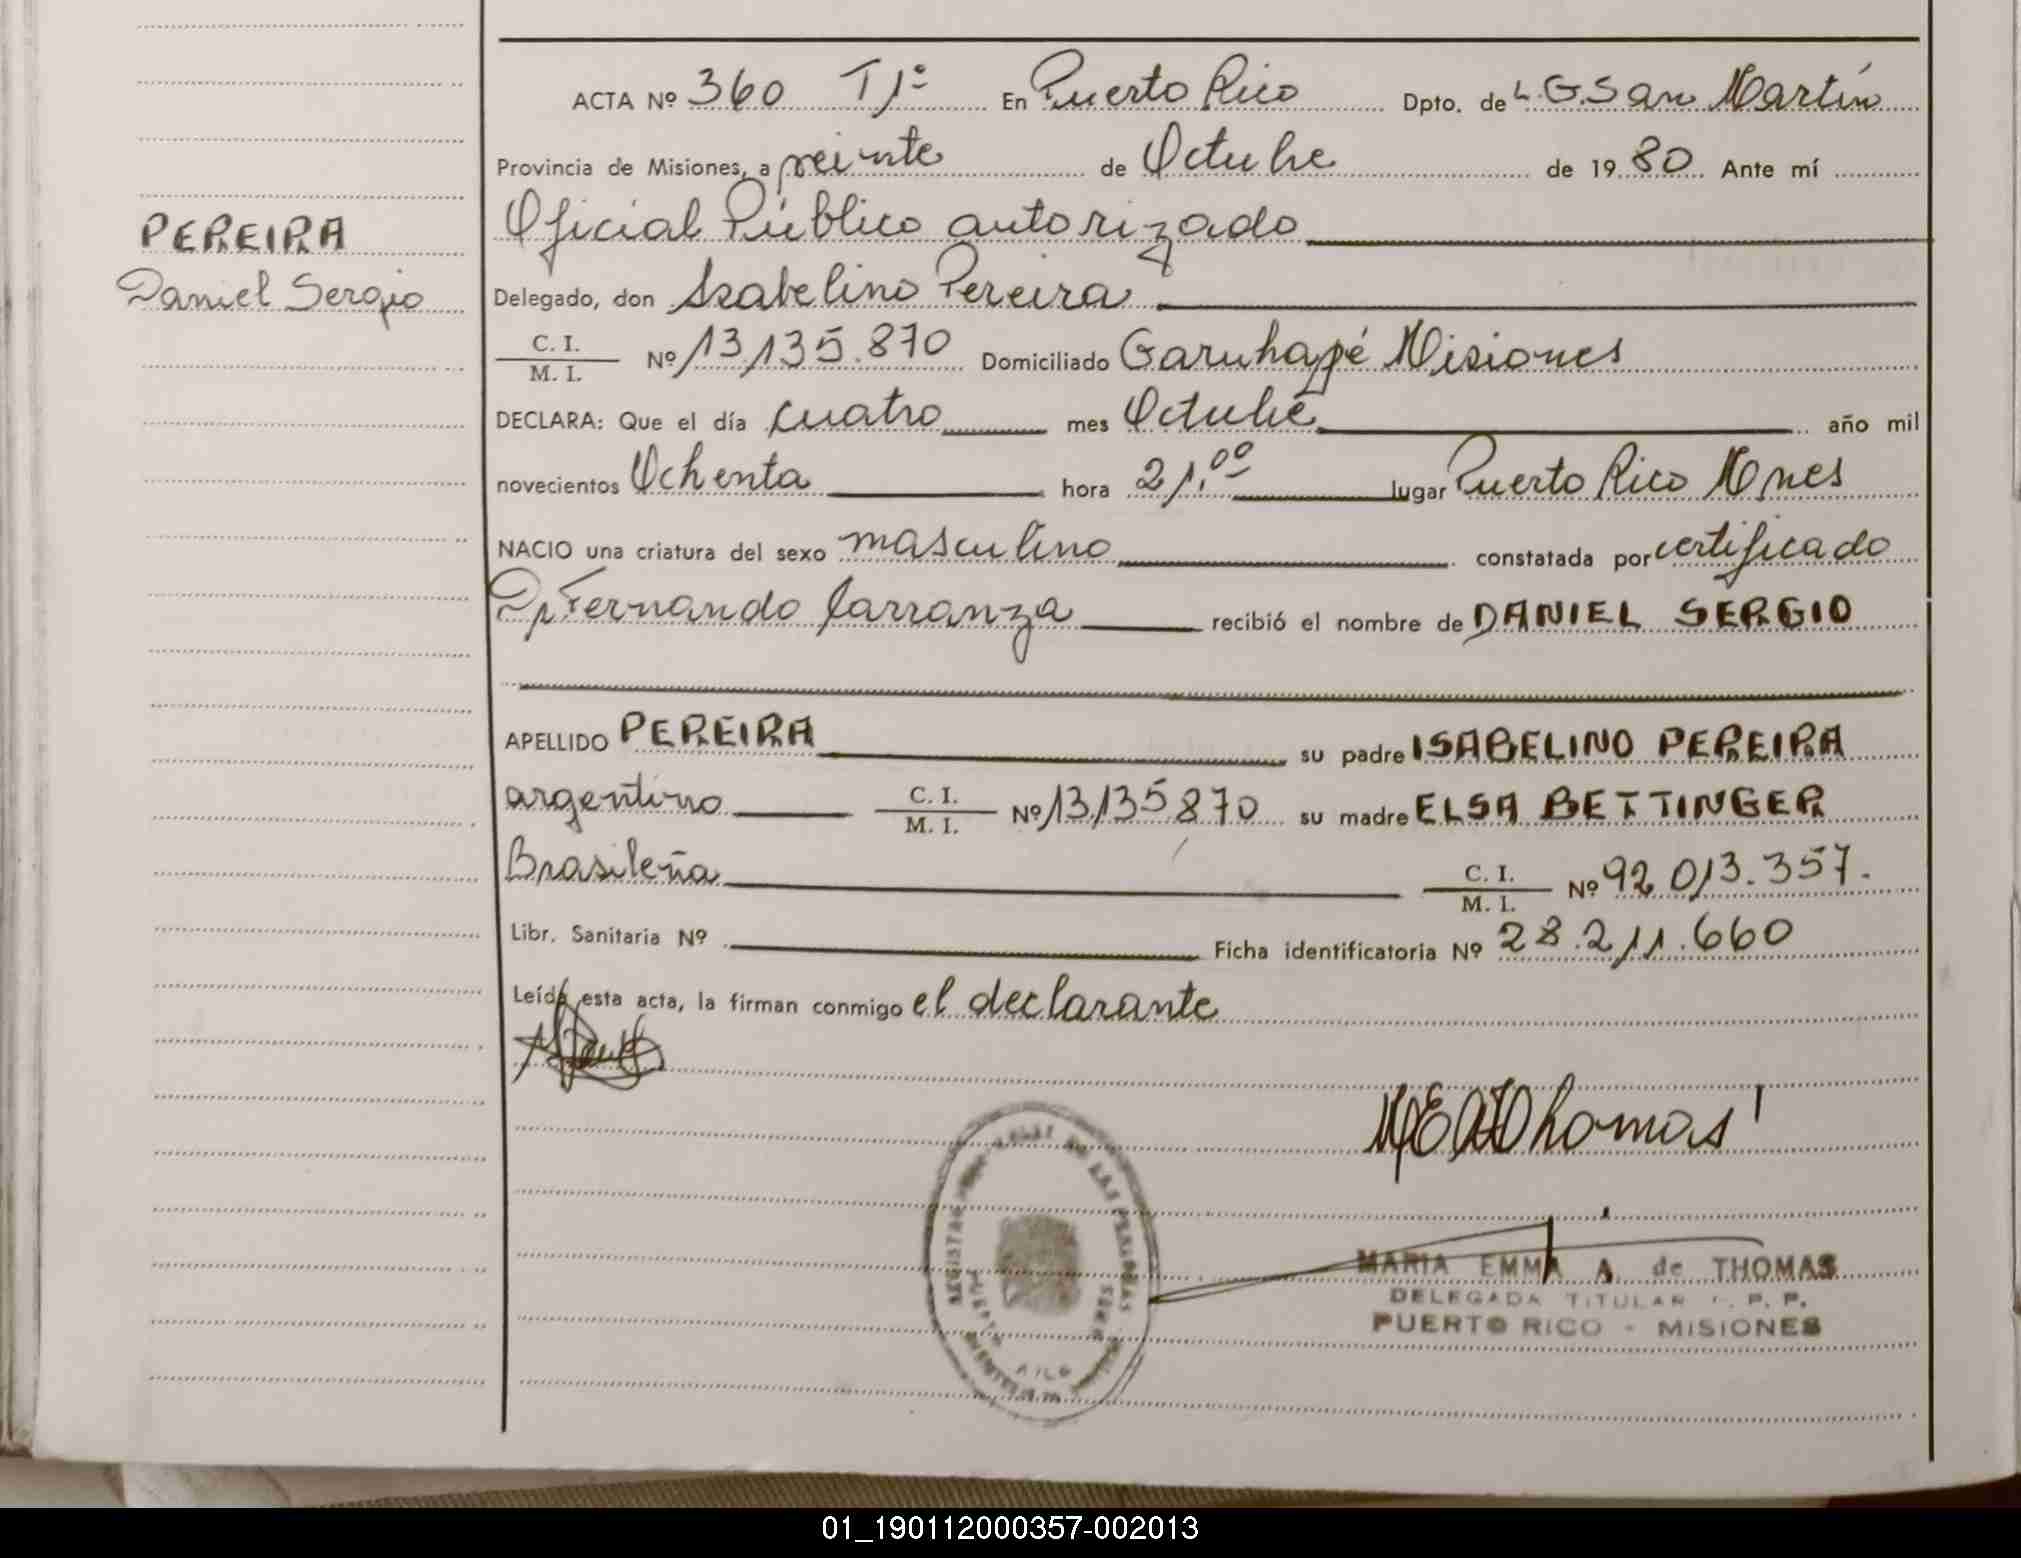 ACTA Nº 360 T1º En Puerto Rico Dpto. de L.G. San Martín
Provincia de Misiones, a veinte de Octubre de 1980 Ante mí
Oficial Público autorizado
PEREIRA
Daniel Sergio
Delegado, don Isabelino Pereira
C. I.
M. I.
Nº 13.135.870 Domiciliado Garuhapé Misiones
DECLARA: Que el día cuatro mes Octubre año mil
novecientos Ochenta hora 21,00 lugar Puerto Rico Mnes
NACIO una criatura del sexo masculino constatada por certificado
Dr Fernando Carranza recibió el nombre de DANIEL SERGIO
APELLIDO PEREIRA su padre ISABELINO PEREIRA
argentino C. I. M. I. Nº 13.135.870 su madre ELSA BETTINGER
Brasileña C. I. M. I. Nº 92.013.357.
Libr. Sanitaria Nº Ficha identificatoria Nº 28.211.660
Leída esta acta, la firman conmigo el declarante
MEA Thomas
MARIA EMMA A. de THOMAS
DELEGADA TITULAR R. P. P.
PUERTO RICO - MISIONES
01_190112000357-002013